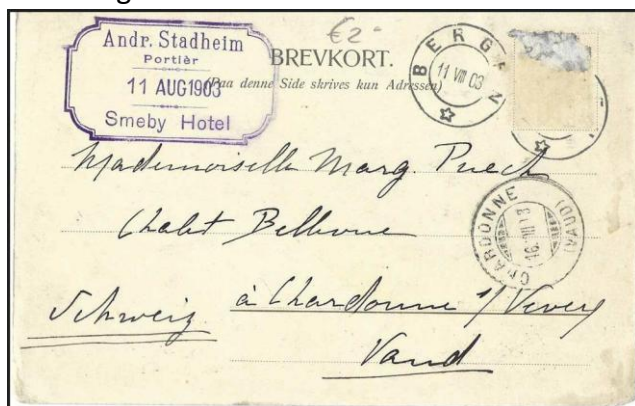 €2-
Andr. Stadheim
Portièr
11 AUG 1903
Smeby Hotel
BREVKORT.
(Paa denne Side skrives kun Adressen)
BERGEN
11 VIII 03
Mademoiselle Marg. Puech
Chalet Bellevue
à Chardonne s/ Vevey
Schweiz
Vaud
CHARDONNE
(VAUD)